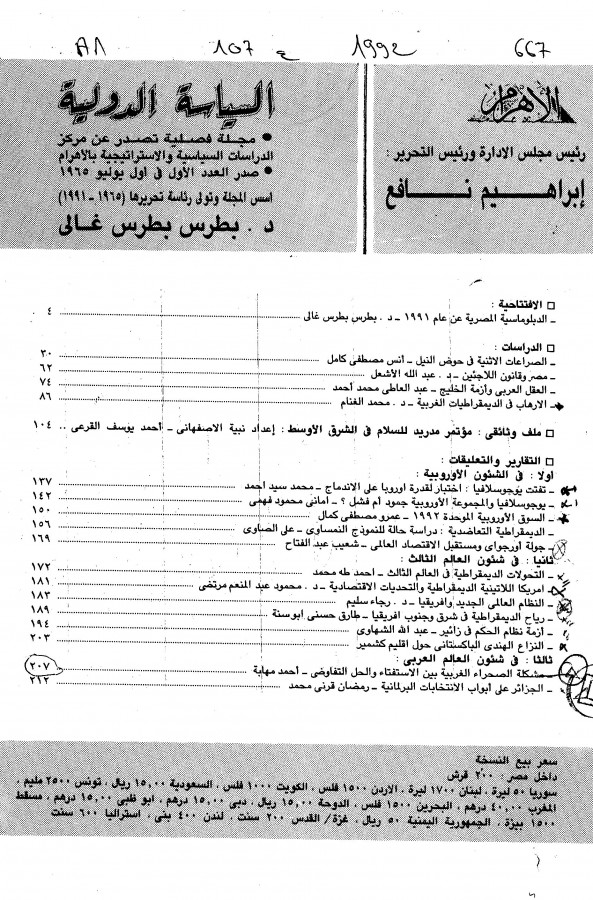 667
1992
ع 107
الأهرام
رئيس مجلس الادارة ورئيس التحرير :
إبراهيم نافع
السياسة الدولية
• مجلة فصلية تصدر عن مركز
الدراسات السياسية والاستراتيجية بالأهرام
• صدر العدد الأول فى اول يوليو ١٩٦٥
اسس المجلة وتولى رئاسة تحريرها (١٩٦٥ - ١٩٩١)
د . بطرس بطرس غالى
□ الافتتاحية :
ـ الدبلوماسية المصرية عن عام ١٩٩١ ـ د . بطرس بطرس غالى ٤
□ الدراسات :
ـ الصراعات الاثنية فى حوض النيل ـ أنس مصطفى كامل ٣٠
ـ مصر وقانون اللاجئين ـ د . عبد الله الأشعل ٦٢
ـ العقل العربى وأزمة الخليج ـ عبد العاطى محمد أحمد ٧٤
ـ الارهاب فى الديمقراطيات الغربية ـ د . محمد الغنام ٨٦
□ ملف وثائقى : مؤتمر مدريد للسلام فى الشرق الأوسط : إعداد نبية الاصفهانى ـ أحمد يوسف القرعى .. ١٠٤
□ التقارير والتعليقات :
اولا : فى الشئون الأوروبية :
ـ تفتت يوجوسلافيا : اختبار لقدرة اوروبا على الاندماج ـ محمد سيد أحمد ١٣٧
ـ يوجوسلافيا والمجموعة الأوروبية جمود أم فشل ؟ ـ أمانى محمود فهمى ١٤٢
ـ السوق الأوروبية الموحدة ١٩٩٢ ـ عمرو مصطفى كمال ١٥٠
ـ الديمقراطية التعاضدية : دراسة حالة للنموذج النمساوى ـ على الصاوى ١٥٦
ـ جولة أورجواى ومستقبل الاقتصاد العالمى ـ شعيب عبد الفتاح ١٦٩
ثانيا : فى شئون العالم الثالث :
ـ التحولات الديمقراطية فى العالم الثالث ـ احمد طه محمد ١٧٢
ـ امريكا اللاتينية الديمقراطية والتحديات الاقتصادية ـ د . محمود عبد المنعم مرتضى ١٨١
ـ النظام العالمى الجديد وافريقيا ـ د . رجاء سليم ١٨٣
ـ رياح الديمقراطية فى شرق وجنوب افريقيا ـ طارق حسنى ابوسنة ١٨٩
ـ أزمة نظام الحكم فى زائير ـ عبد الله الشهاوى ١٩٤
ـ النزاع الهندى الباكستانى حول اقليم كشمير ٢٠٣
ثالثا : فى شئون العالم العربى :
ـ مشكلة الصحراء الغربية بين الاستفتاء والحل التفاوضى ـ أحمد مهابة ٢٠٧
ـ الجزائر على أبواب الانتخابات البرلمانية ـ رمضان قرنى محمد ٢١٢
سعر بيع النسخة
داخل مصر : ٢٠٠ قرش
سوريا ٥٠ ليرة ، لبنان ١٧٠٠ ليرة ، الاردن ١٥٠٠ فلس ، الكويت ١٠٠٠ فلس ، السعودية ١٥,٠٠ ريال ، تونس ٢٥٠٠ مليم ،
المغرب ٤٠,٠٠ درهم ، البحرين ١٥٠٠ فلس ، الدوحة ١٥,٠٠ ريال ، دبى ١٥,٠٠ درهم ، ابو ظبى ١٥,٠٠ درهم ، مسقط
١٥٠٠ بيزة ، الجمهورية اليمنية ٥٠ ريال ، غزة/ القدس ٢٠٠ سنت ، لندن ٤٠٠ بنى ، استراليا ٦٠٠ سنت